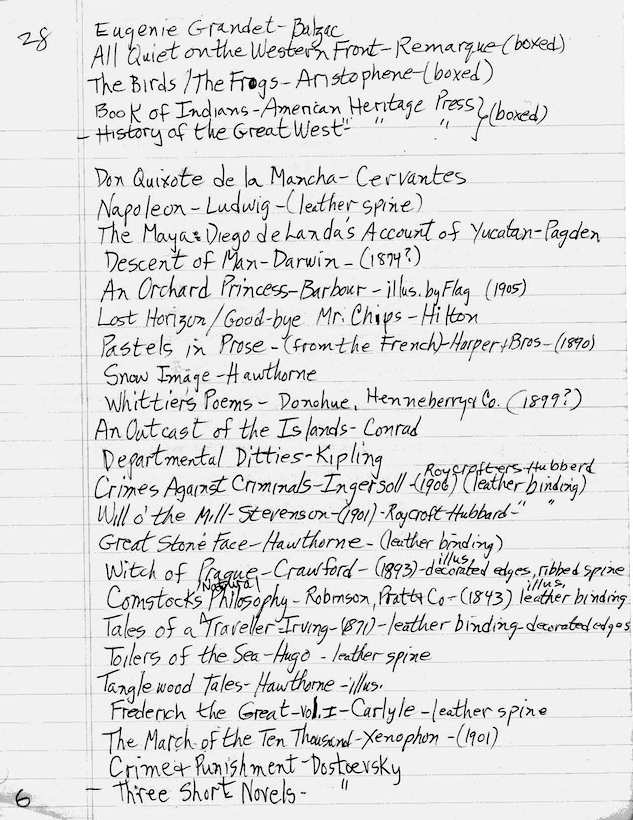 28
Eugenie Grandet - Balzac
All Quiet on the Western Front - Remarque - (boxed)
The Birds / The Frogs - Aristophene - (boxed)
Book of Indians - American Heritage Press } (boxed)
- History of the Great West - " " "
Don Quixote de la Mancha - Cervantes
Napoleon - Ludwig - (leather spine)
The Maya: Diego de Landa's Account of Yucatan - Pagden
Descent of Man - Darwin - (1874?)
An Orchard Princess - Barbour - illus. by Flag (1905)
Lost Horizon / Good-bye Mr. Chips - Hilton
Pastels in Prose - (from the French) - Harper + Bros - (1890)
Snow Image - Hawthorne
Whittier's Poems - Donohue, Henneberry & Co. (1899?)
An Outcast of the Islands - Conrad
Departmental Ditties - Kipling
Roycrofters Hubberd
Crimes Against Criminals - Ingersoll - (1906) (leather binding)
Will o' the Mill - Stevenson - (1901) - Roycroft Hubbard - " "
Great Stone Face - Hawthorne - (leather binding)
illus.
Witch of Prague - Crawford - (1893) - decorated edges, ribbed spine
Natural illus,
Comstocks Philosophy - Robinson, Pratt & Co - (1843) leather binding
Tales of a Traveller - Irving - (1871) - leather binding - decorated edges
Toilers of the Sea - Hugo - leather spine
Tanglewood Tales - Hawthorne - illus.
Frederich the Great - vol. I - Carlyle - leather spine
The March of the Ten Thousand - Xenophon - (1901)
Crime + Punishment - Dostoevsky
- Three Short Novels - "
6